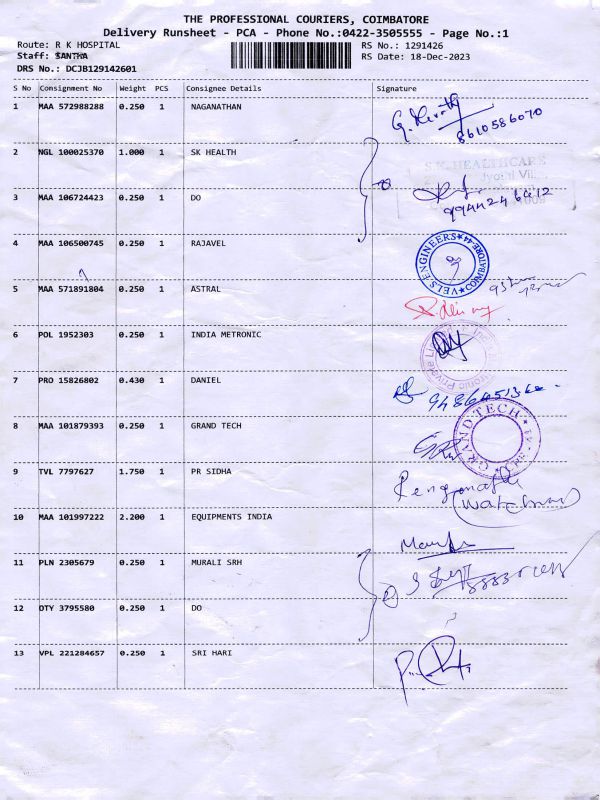 THE PROFESSIONAL COURIERS, COIMBATORE
Delivery Runsheet - PCA - Phone No.:0422-3505555 - Page No.:1
Route: R K HOSPITAL
RS No.: 1291426
Staff: SANTHA
RS Date: 18-Dec-2023
DRS No.: DCJB129142601
S No Consignment No Weight PCS Consignee Details Signature
1 MAA 572988288 0.250 1 NAGANATHAN
8610586070
2 NGL 100025370 1.000 1 SK HEALTH
S.K. HEALTHCARE
3 MAA 106724423 0.250 1 DO
9944246412
4 MAA 106500745 0.250 1 RAJAVEL
VELS ENGINEERS COIMBATORE-44
5 MAA 571891804 0.250 1 ASTRAL
6 POL 1952303 0.250 1 INDIA METRONIC
7 PRO 15826802 0.430 1 DANIEL
8 MAA 101879393 0.250 1 GRAND TECH
GRAND TECH
9 TVL 7797627 1.750 1 PR SIDHA
(watchman)
10 MAA 101997222 2.200 1 EQUIPMENTS INDIA
11 PLN 2305679 0.250 1 MURALI SRH
12 DTY 3795580 0.250 1 DO
13 VPL 221284657 0.250 1 SRI HARI